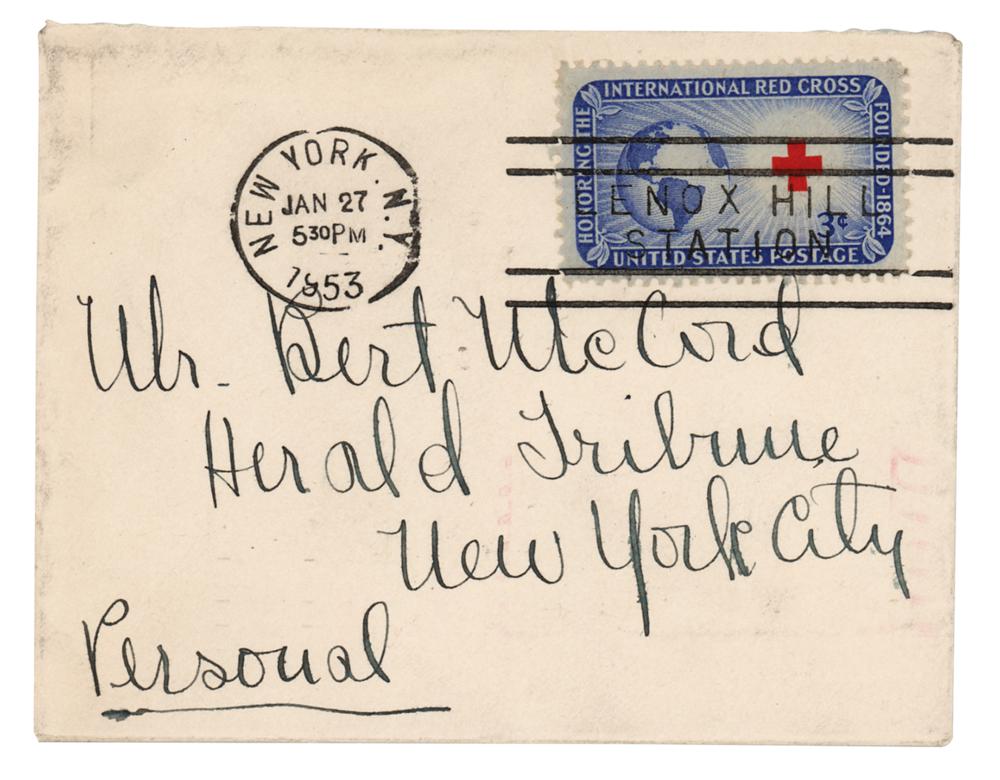 INTERNATIONAL RED CROSS
HONORING THE
FOUNDED-1864
3¢
UNITED STATES POSTAGE
LENOX HILL
STATION
NEW YORK, N.Y.
JAN 27
530PM
1953
Mr. Bert McCord
Herald Tribune
New York City
Personal